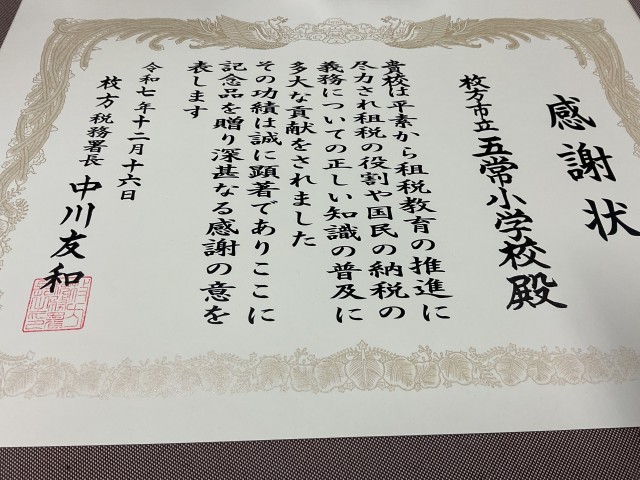 感謝状
枚方市立五常小学校殿
貴校は平素から租税教育の推進に
尽力され租税の役割や国民の納税の
義務についての正しい知識の普及に
多大な貢献をされました
その功績は誠に顕著でありここに
記念品を贈り深甚なる感謝の意を
表します
令和七年十二月十六日
枚方税務署長 中川友和